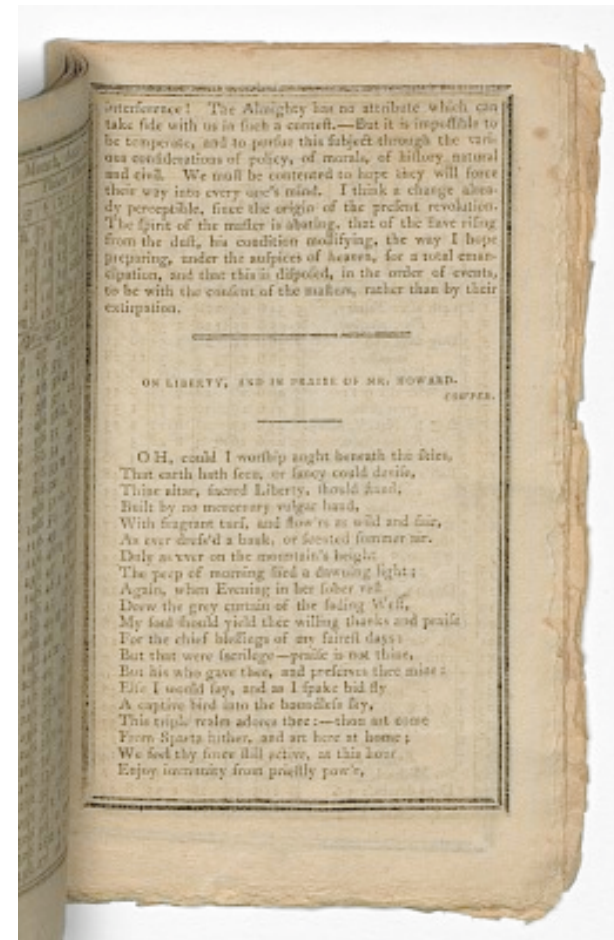 interference! The Almighty has no attribute which can
take ſide with us in ſuch a conteſt.—But it is impoſſible to
be temperate, and to purſue this ſubject through the vari-
ous conſiderations of policy, of morals, of hiſtory natural
and civil. We muſt be contented to hope they will force
their way into every one's mind. I think a change alrea-
dy perceptible, ſince the origin of the preſent revolution.
The ſpirit of the maſter is abating, that of the ſlave riſing
from the duſt, his condition mollifying, the way I hope
preparing, under the auſpices of heaven, for a total eman-
cipation, and that this is diſpoſed, in the order of events,
to be with the conſent of the maſters, rather than by their
extirpation.
ON LIBERTY, AND IN PRAISE OF MR. HOWARD.
COWPER.
OH, could I worſhip aught beneath the ſkies,
That earth hath ſeen, or fancy could deviſe,
Thine altar, ſacred Liberty, ſhould ſtand,
Built by no mercenary vulgar hand,
With fragrant turf, and flow'rs as wild and fair,
As ever dreſs'd a bank, or ſcented ſummer air.
Duly as ever on the mountain's height
The peep of morning ſhed a dawning light;
Again, when Evening in her ſober veſt
Drew the grey curtain of the fading Weſt,
My ſoul ſhould yield thee willing thanks and praiſe
For the chief bleſſings of my faireſt days:
But that were ſacrilege—praiſe is not thine,
But his who gave thee, and preſerves thee mine:
Elſe I would ſay, and as I ſpake bid fly
A captive bird into the boundleſs ſky,
This triple realm adores thee:—thou art come
From Sparta hither, and art here at home;
We feel thy force ſtill active, at this hour
Enjoy immunity from prieſtly pow'r,